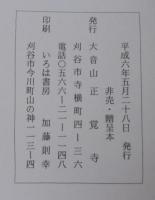 平成六年五月二十八日　発行
非売・贈呈本
発行　大音山　正覚寺
刈谷市寺横町四ー三六
電話〇五六六ー二一ー一一四八
印刷　いろは書房　加藤則幸
刈谷市今川町山の神一一三ー四